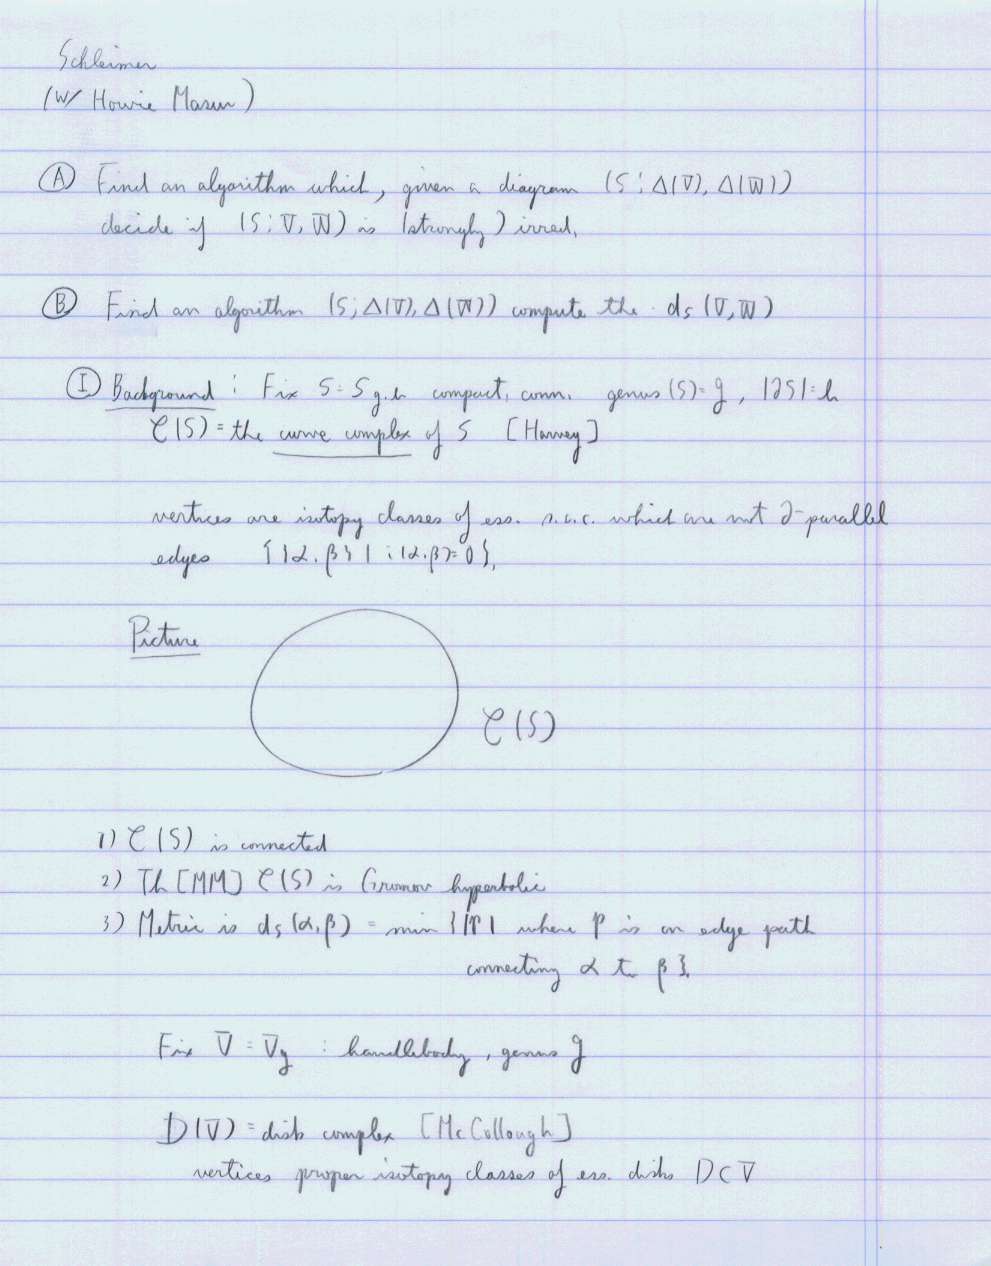 Schleimer
(w/ Howie Masur)
Ⓐ Find an algorithm which, given a diagram (S; Δ(V), Δ(W))
decide if (S; V, W) is (strongly) irred.
Ⓑ Find an algorithm (S; Δ(V), Δ(W)) compute the d_S (V, W)
Ⓘ Background : Fix S = S_{g,b} compact, conn. genus (S) = g, |∂S| = b
𝒞(S) = the curve complex of S [Harvey]
vertices are isotopy classes of ess. s.c.c. which are not ∂-parallel
edges {(α, β) | i(α, β) = 0},
Picture
𝒞(S)
1) 𝒞(S) is connected
2) Th [MM] 𝒞(S) is Gromov hyperbolic
3) Metric is d_S (α, β) = min {|P| where P is an edge path
connecting α to β}.
Fix V = V_g : handlebody, genus g
D(V) = disk complex [McCollough]
vertices proper isotopy classes of ess. disks D ⊂ V